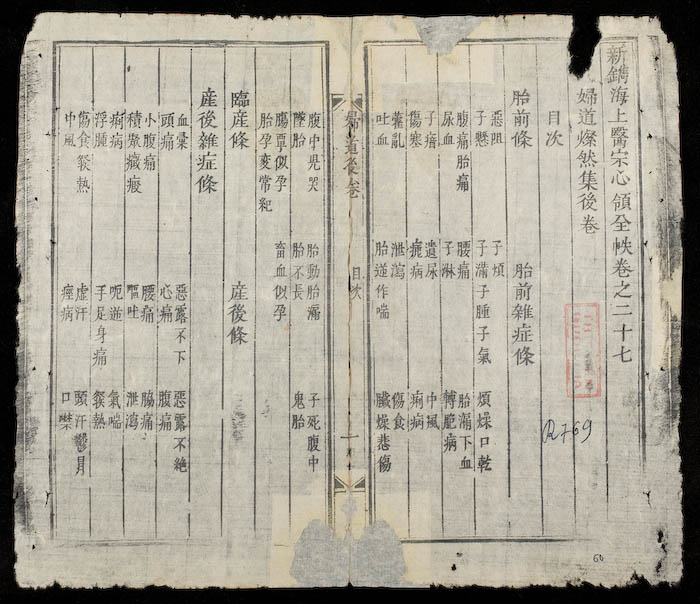 新鐫海上醫宗心領全帙卷之二十七
婦道燦然集後卷
目次
胎前條 胎前雜症條
惡阻 子煩
子懸 子滿子腫子氣 煩燥口乾
腹痛胎痛 腰痛 胎漏下血
尿血 子淋 轉脬病
子瘖 遺尿 中風
傷寒 瘧病 痢病
霍亂 泄瀉 傷食
吐血 胎逆作喘 臟燥悲傷
婦道後卷 目次 一
腹中兒哭 胎動胎漏 子死腹中
墜胎 胎不長 鬼胎
腸覃似孕 畜血似孕
胎孕變常紀
臨產條 產後條
產後雜症條
血暈 惡露不下 惡露不絕
頭痛 心痛 腹痛
小腹痛 腰痛 脇痛
積聚癥瘕 嘔吐 泄瀉
痢病 呃逆 氣喘
浮腫 手足身痛 發熱
傷食發熱 虛汗 頭汗
中風 痙病 口噤
R769
60